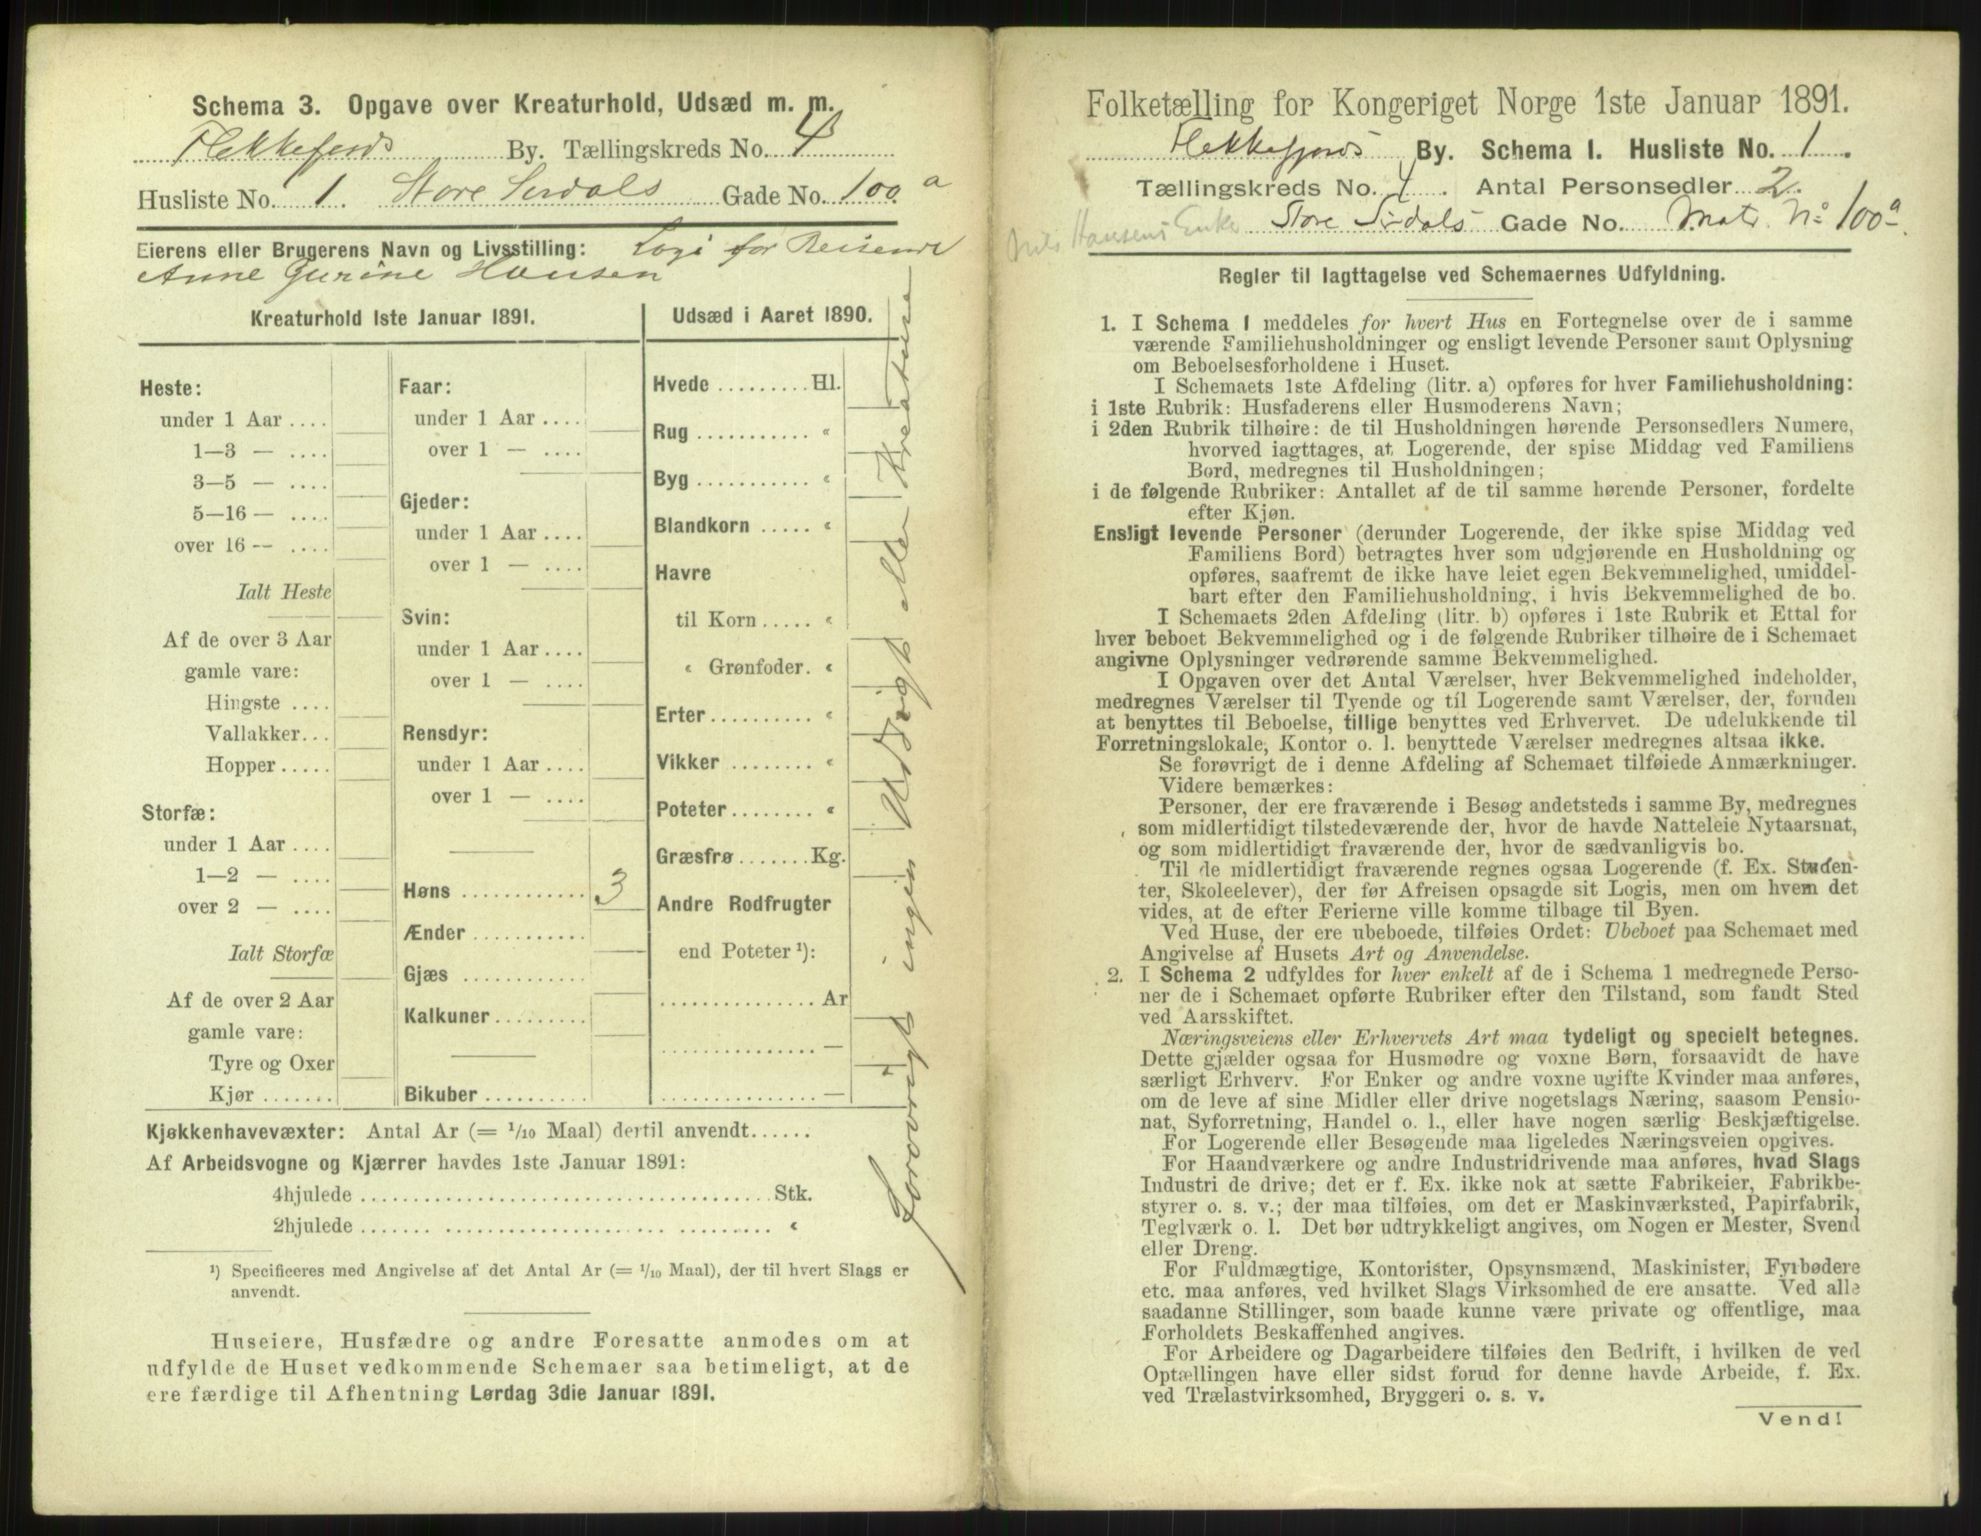 Schema 3. Opgave over Kreaturhold, Udsæd m. m.
Flekkefjords By. Tællingskreds No. 4
Husliste No. 1. Store Sirdals Gade No. 100 a
Eierens eller Brugerens Navn og Livsstilling: Logi for Reisende
Anne Gurine Hansen
Kreaturhold 1ste Januar 1891.
Heste:
under 1 Aar ....
1—3 — ....
3—5 — ....
5—16 — ....
over 16 — ....
Ialt Heste
Af de over 3 Aar
gamle vare:
Hingste ....
Vallakker...
Hopper .....
Storfæ:
under 1 Aar ....
1—2 — ....
over 2 — ....
Ialt Storfæ
Af de over 2 Aar
gamle vare:
Tyre og Oxer
Kjør .......
Faar:
under 1 Aar ....
over 1 — ....
Gjeder:
under 1 Aar ....
over 1 — ....
Svin:
under 1 Aar ....
over 1 — ....
Rensdyr:
under 1 Aar ....
over 1 — ....
Høns ............ 3
Ænder ...........
Gjæs ............
Kalkuner.........
Bikuber ..........
Udsæd i Aaret 1890.
Hvede ......... Hl.
Rug ........... "
Byg ........... "
Blandkorn ..... "
Havre
til Korn ..... "
" Grønfoder. "
Erter.......... "
Vikker ........ "
Poteter........ "
Græsfrø ....... Kg.
Andre Rodfrugter
end Poteter ¹):
............... Ar
............... —
............... —
Forøvrigt ingen Udsigt eller Kreaturer
Kjøkkenhavevæxter: Antal Ar (= 1/10 Maal) dertil anvendt......
Af Arbeidsvogne og Kjærrer havdes 1ste Januar 1891:
4hjulede .................................... Stk.
2hjulede ...... .................. ......... "
¹) Specificeres med Angivelse af det Antal Ar (= 1/10 Maal), der til hvert Slags er
anvendt.
Huseiere, Husfædre og andre Foresatte anmodes om at
udfylde de Huset vedkommende Schemaer saa betimeligt, at de
ere færdige til Afhentning Lørdag 3die Januar 1891.
Folketælling for Kongeriget Norge 1ste Januar 1891.
Flekkefjords By. Schema 1. Husliste No. 1.
Tællingskreds No. 4. Antal Personsedler 2.
Nils Hansens Enke Store Sirdals Gade No. Matr. No 100 a.
Regler til Iagttagelse ved Schemaernes Udfyldning.
1. I Schema 1 meddeles for hvert Hus en Fortegnelse over de i samme
værende Familiehusholdninger og ensligt levende Personer samt Oplysning
om Beboelsesforholdene i Huset.
I Schemaets 1ste Afdeling (litr. a) opføres for hver Familiehusholdning:
i 1ste Rubrik: Husfaderens eller Husmoderens Navn;
i 2den Rubrik tilhøire: de til Husholdningen hørende Personsedlers Numere,
hvorved iagttages, at Logerende, der spise Middag ved Familiens
Bord, medregnes til Husholdningen;
i de følgende Rubriker: Antallet af de til samme hørende Personer, fordelte
efter Kjøn.
Ensligt levende Personer (derunder Logerende, der ikke spise Middag ved
Familiens Bord) betragtes hver som udgjørende en Husholdning og
opføres, saafremt de ikke have leiet egen Bekvemmelighed, umiddel-
bart efter den Familiehusholdning, i hvis Bekvemmelighed de bo.
I Schemaets 2den Afdeling (litr. b) opføres i 1ste Rubrik et Ettal for
hver beboet Bekvemmelighed og i de følgende Rubriker tilhøire de i Schemaet
angivne Oplysninger vedrørende samme Bekvemmelighed.
I Opgaven over det Antal Værelser, hver Bekvemmelighed indeholder,
medregnes Værelser til Tyende og til Logerende samt Værelser, der, foruden
at benyttes til Beboelse, tillige benyttes ved Erhvervet. De udelukkende til
Forretningslokale, Kontor o. l. benyttede Værelser medregnes altsaa ikke.
Se forøvrigt de i denne Afdeling af Schemaet tilføiede Anmærkninger.
Videre bemærkes:
Personer, der ere fraværende i Besøg andetsteds i samme By, medregnes
som midlertidigt tilstedeværende der, hvor de havde Natteleie Nytaarsnat,
og som midlertidigt fraværende der, hvor de sædvanligvis bo.
Til de midlertidigt fraværende regnes ogsaa Logerende (f. Ex. Studen-
ter, Skoleelever), der før Afreisen opsagde sit Logis, men om hvem det
vides, at de efter Ferierne ville komme tilbage til Byen.
Ved Huse, der ere ubeboede, tilføies Ordet: Ubeboet paa Schemaet med
Angivelse af Husets Art og Anvendelse.
2. I Schema 2 udfyldes for hver enkelt af de i Schema 1 medregnede Perso-
ner de i Schemaet opførte Rubriker efter den Tilstand, som fandt Sted
ved Aarsskiftet.
Næringsveiens eller Erhvervets Art maa tydeligt og specielt betegnes.
Dette gjælder ogsaa for Husmødre og voxne Børn, forsaavidt de have
særligt Erhverv. For Enker og andre voxne ugifte Kvinder maa anføres,
om de leve af sine Midler eller drive nogetslags Næring, saasom Pensio-
nat, Syforretning, Handel o. l., eller have nogen særlig Beskjæftigelse.
For Logerende eller Besøgende maa ligeledes Næringsveien opgives.
For Haandværkere og andre Industridrivende maa anføres, hvad Slags
Industri de drive; det er f. Ex. ikke nok at sætte Fabrikeier, Fabrikbe-
styrer o. s. v.; der maa tilføies, om det er Maskinværksted, Papirfabrik,
Teglværk o. l. Det bør udtrykkeligt angives, om Nogen er Mester, Svend
eller Dreng.
For Fuldmægtige, Kontorister, Opsynsmænd, Maskinister, Fyrbødere
etc. maa anføres, ved hvilket Slags Virksomhed de ere ansatte. Ved alle
saadanne Stillinger, som baade kunne være private og offentlige, maa
Forholdets Beskaffenhed angives.
For Arbeidere og Dagarbeidere tilføies den Bedrift, i hvilken de ved
Optællingen have eller sidst forud for denne havde Arbeide, f. Ex.
ved Trælastvirksomhed, Bryggeri o. s. v.
Vend!